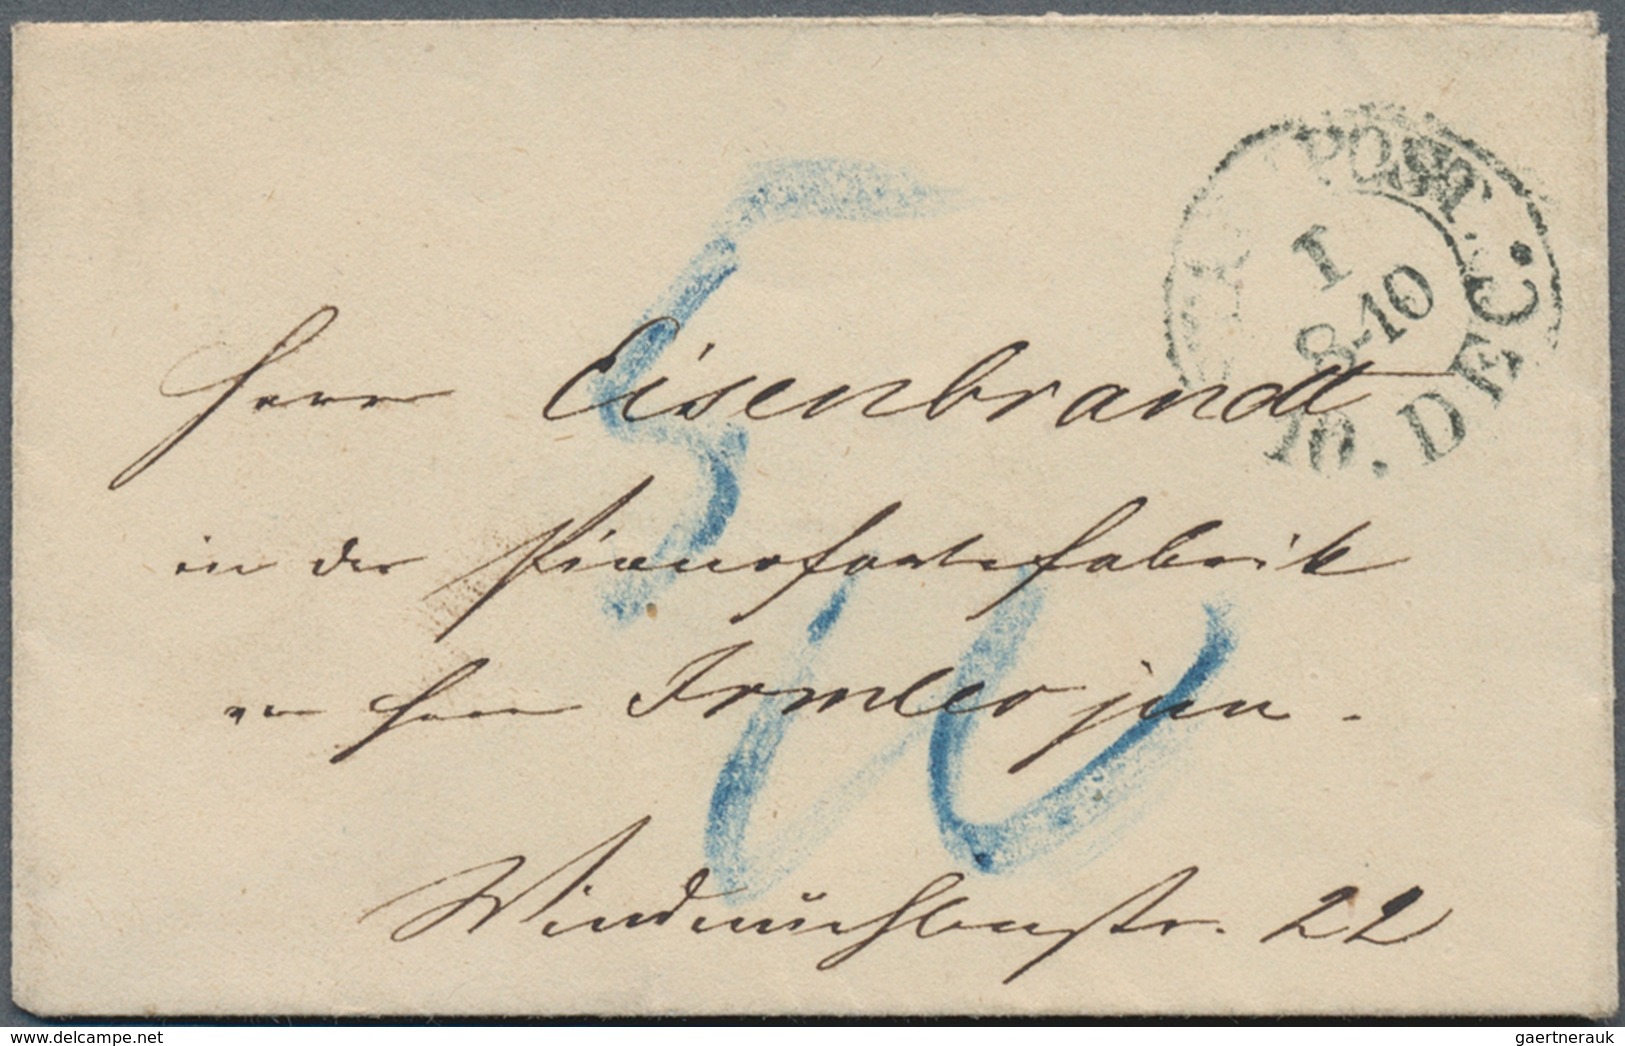 POST.
I
8-10
10. DEC.
5
Herrn Eisenbrandt
in der Pianofortefabrik
von Herrn Irmler jun.
Windmühlenstr. 22
delcampe.net
gaertnerauk